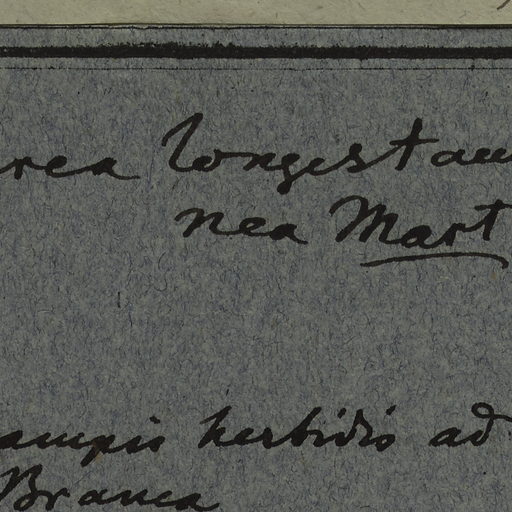 rea longestam
nea Mart
ampis herbidis ad
Branca